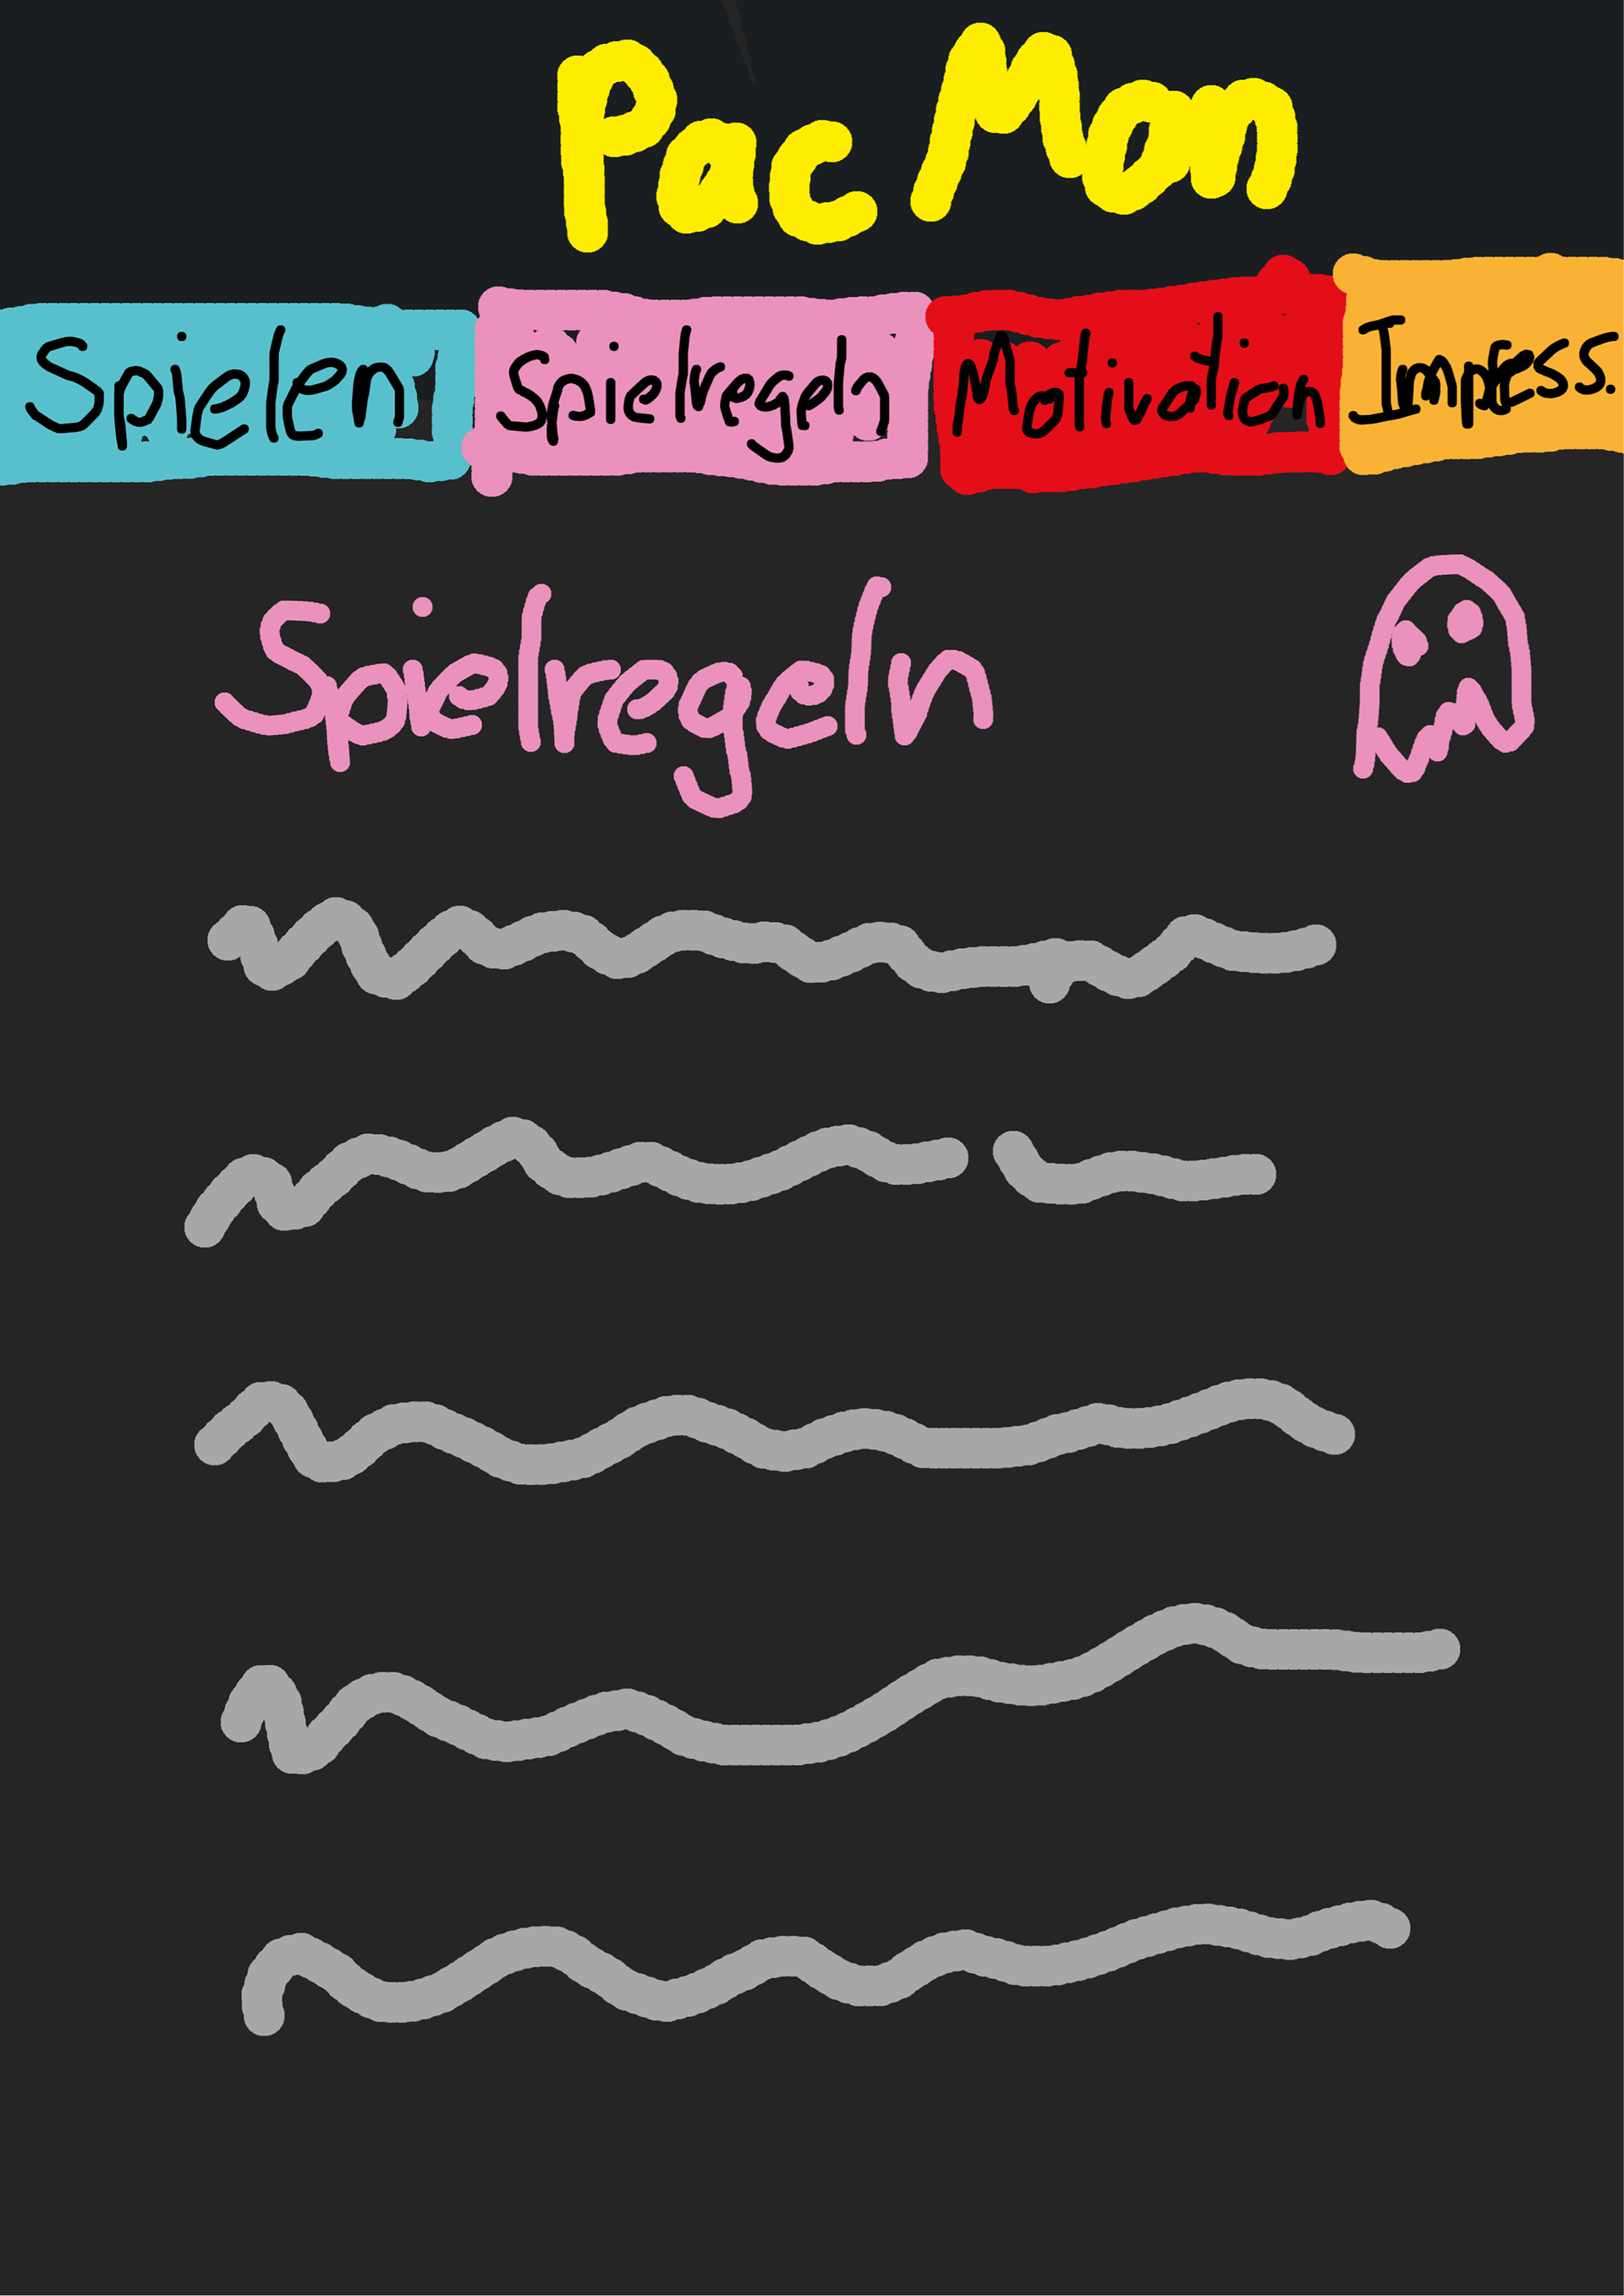 Pac Man
Spielen Spielregeln Motivation Impress.
Spielregeln